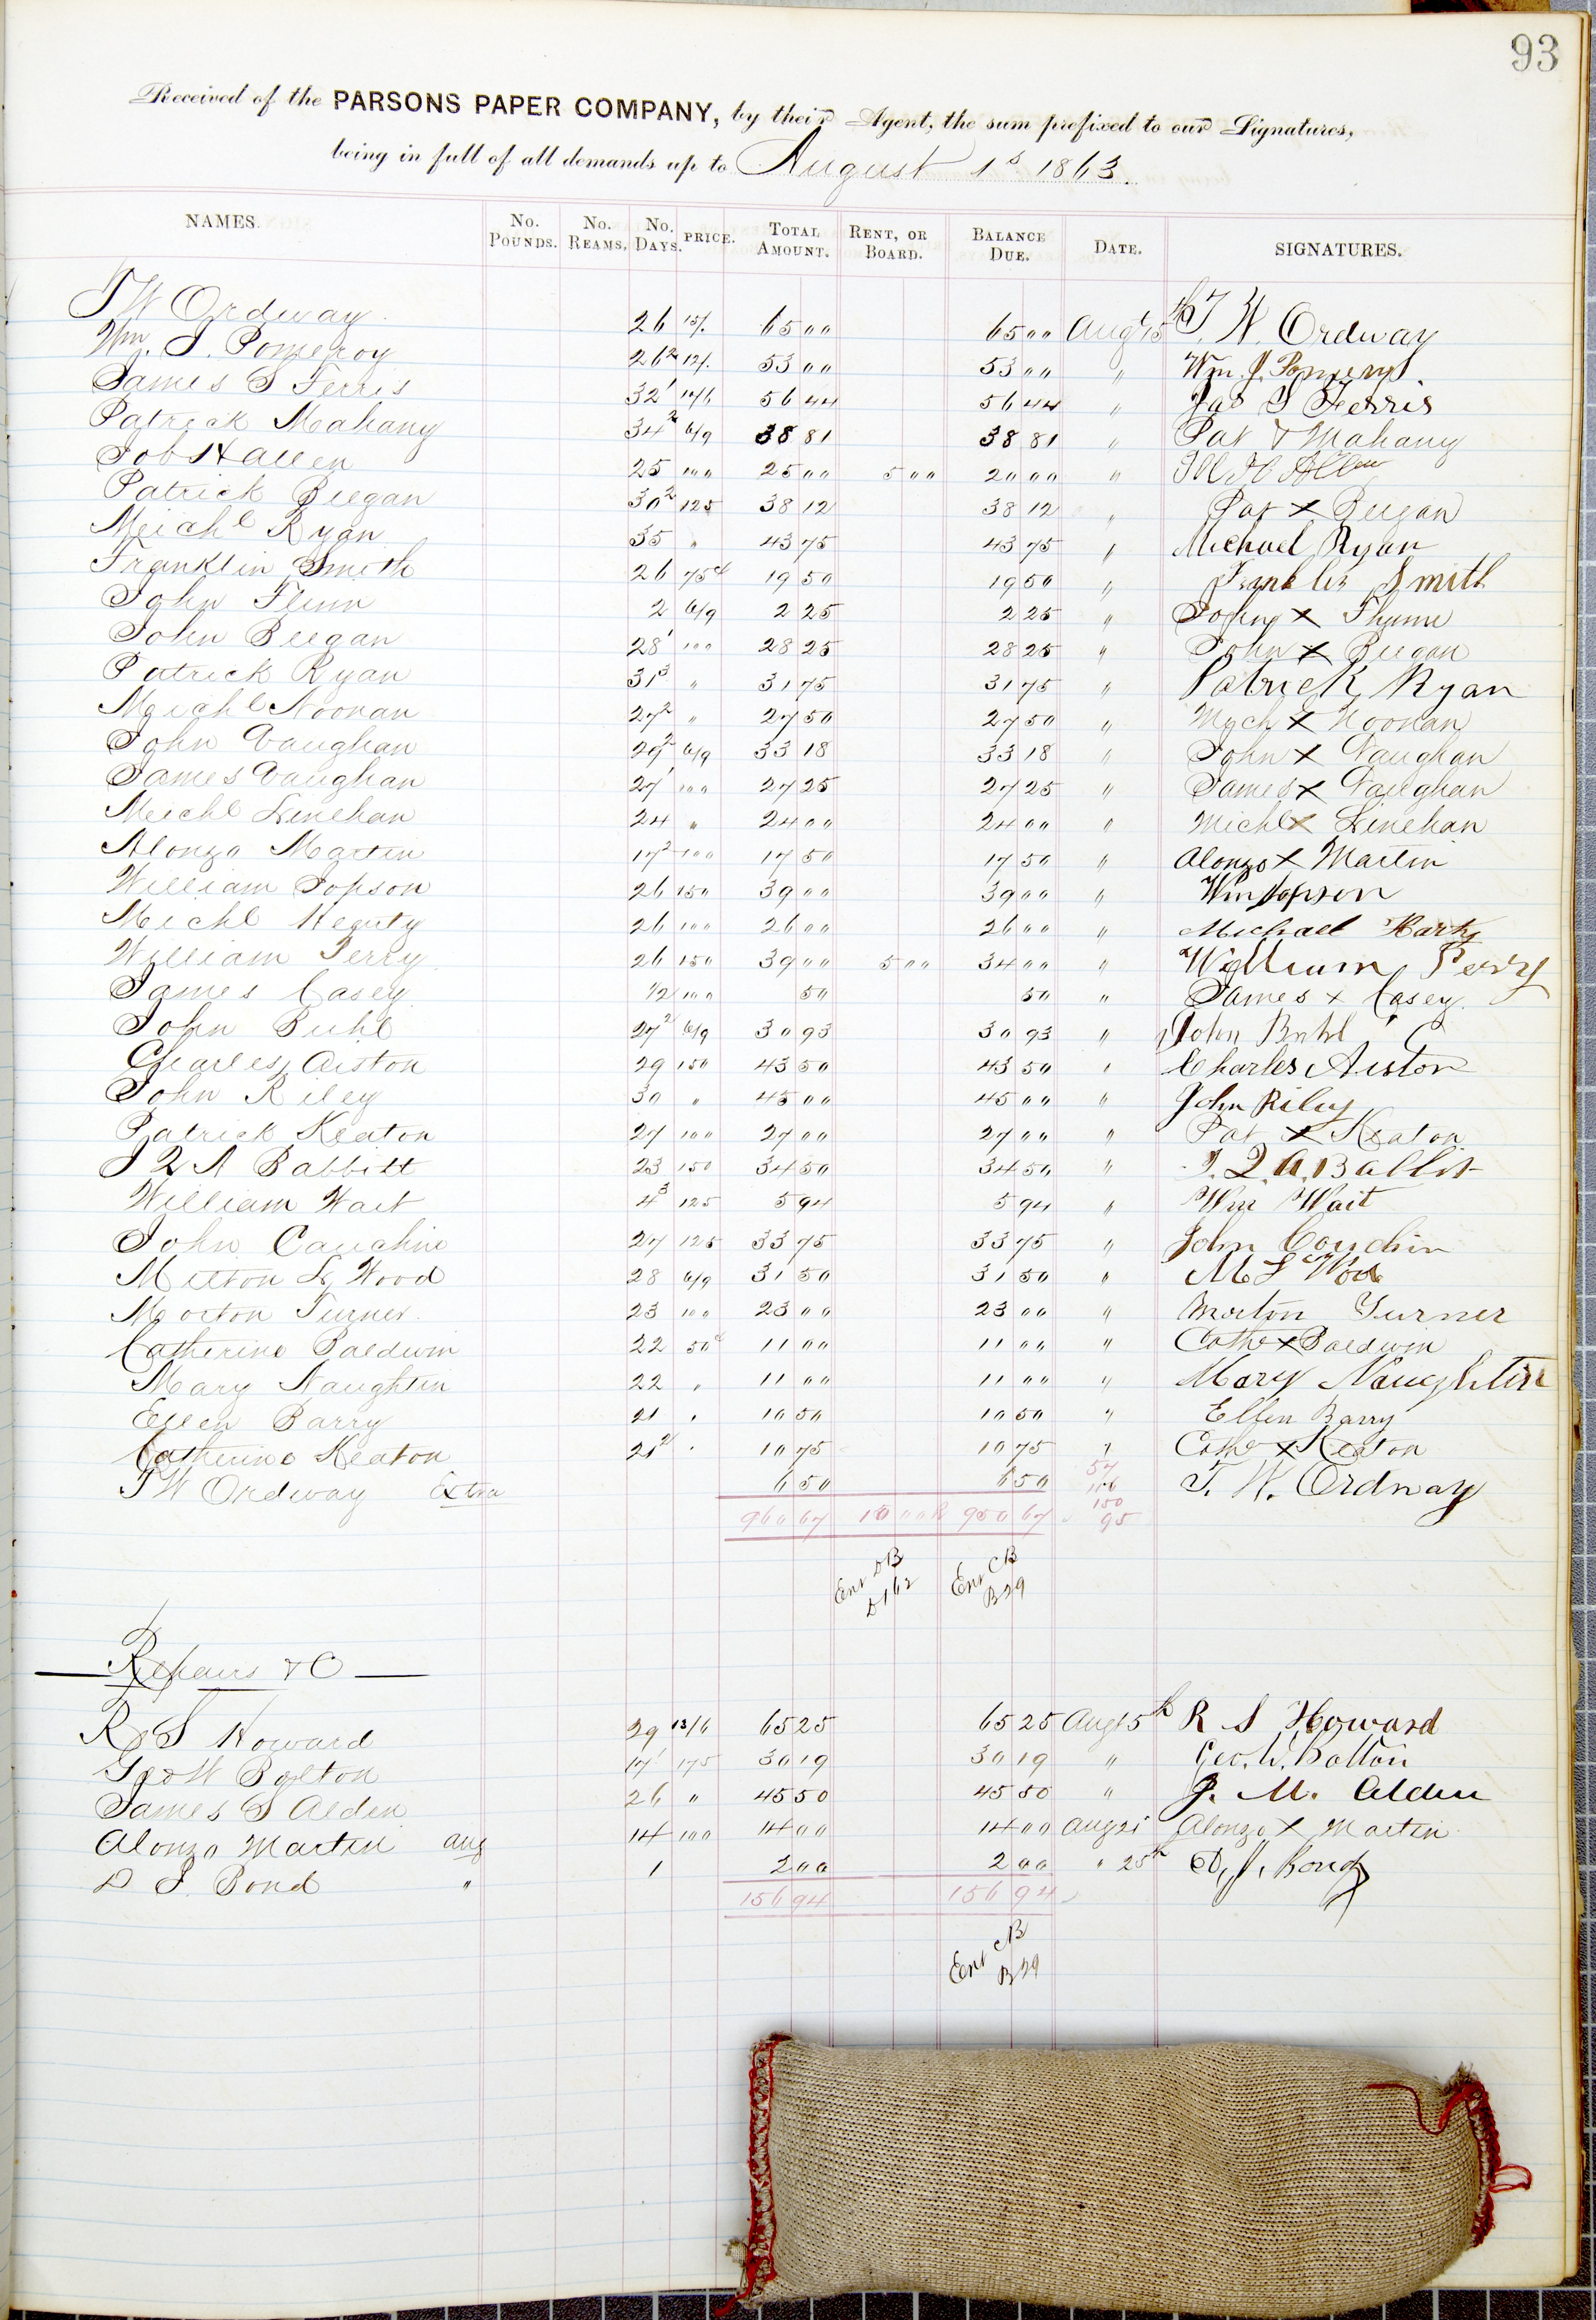 93
Received of the PARSONS PAPER COMPANY, by their Agent, the sum prefixed to our Signatures,
being in full of all demands up to August 1st 1863.
NAMES. No. POUNDS. No. REAMS. No. DAYS. PRICE. TOTAL AMOUNT. RENT, OR BOARD. BALANCE DUE. DATE. SIGNATURES.
T W Ordway 26 15/. 65 00 65 00 Aug 15th T. W. Ordway
Wm. J. Pomeroy 26² 12/. 53 00 53 00 " Wm. J. Pomeroy
James S Ferris 32¹ 10/6 56 44 56 44 " Jas S Ferris
Patrick Mahany 34² 6/9 38 81 38 81 " Pat X Mahany
Job H Allen 25 100 25 00 5 00 20 00 "
Patrick Beegan 30² 125 38 12 38 12 " Pat X Beegan
Meichl Ryan 35 " 43 75 43 75 " Michael Ryan
Franklin Smith 26 75¢ 19 50 19 50 " Franklin Smith
John Flinn 2 6/9 2 25 2 25 " John X Thume
John Beegan 28¹ 100 28 25 28 25 " John X Beegan
Patrick Ryan 31³ " 31 75 31 75 " Patrick Ryan
Meichl Noonan 27² " 27 50 27 50 " Mych X Noonan
John Vaughan 29² 6/9 33 18 33 18 " John X Vaughan
James Vaughan 27¹ 100 27 25 27 25 " James X Vaughan
Meichl Linehan 24 " 24 00 24 00 " Michl X Linehan
Alonzo Martin 17² 100 17 50 17 50 " Alonzo X Martin
William Jopson 26 150 39 00 39 00 " Wm Jopson
Meichl Hearty 26 100 26 00 26 00 " Michael Harty
William Perry 26 150 39 00 5 00 34 00 " William Perry
James Casey 1/2 100 50 50 " James X Casey
John Buhl 27² 6/9 30 93 30 93 " John Buhl
Charles Aiston 29 150 43 50 43 50 " Charles Aiston
John Riley 30 " 45 00 45 00 " John Riley
Patrick Keaton 27 100 27 00 27 00 " Pat X Keaton
J Q A Babbitt 23 150 34 50 34 50 " J. Q. A. Babbit
William Wait 4³ 125 5 94 5 94 " Wm Wait
John Cauchin 27 125 33 75 33 75 " John Couchin
Milton L Wood 28 6/9 31 50 31 50 " M L Wood
Morton Turner 23 100 23 00 23 00 " Morton Turner
Catherine Baldwin 22 50¢ 11 00 11 00 " Cathe X Baldwin
Mary Naughtin 22 " 11 00 11 00 " Mary Naughtin
Ellen Barry 21 " 10 50 10 50 " Ellen Barry
Catherine Keaton 21² " 10 75 10 75 " Cathe X Keaton
T W Ordway Extra 6 50 6 50 " T. W. Ordway
960 67 10 00 950 67
150
95
Ent DB Ent CB
D162 B29
Repairs &C
R S Howard 29 13/6 65 25 65 25 Augt 5th R S Howard
Geo W Bolton 17¹ 175 30 19 30 19 " Geo. W. Bolton
James S Alden 26 " 45 50 45 50 " J. M. Alden
Alonzo Martin Aug 14 100 14 00 14 00 Aug 21 Alonzo X Martin
D J. Bond " 1 2 00 2 00 " 25th D. J. Bond
156 94 156 94
Ent CB
B29